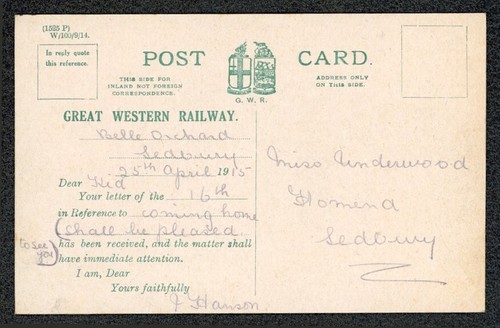 (1525 P)
W/100/9/14.
In reply quote
this reference.
POST CARD.
THIS SIDE FOR
INLAND NOT FOREIGN
CORRESPONDENCE.
ADDRESS ONLY
ON THIS SIDE.
G. W. R.
GREAT WESTERN RAILWAY.
Belle Orchard
Ledbury
25th April 1915
Dear Kid
Your letter of the 16th
in Reference to coming home
(shall be pleased
to see
you)
has been received, and the matter shall
have immediate attention.
I am, Dear
Yours faithfully
J Hanson
Miss Underwood
Homend
Ledbury